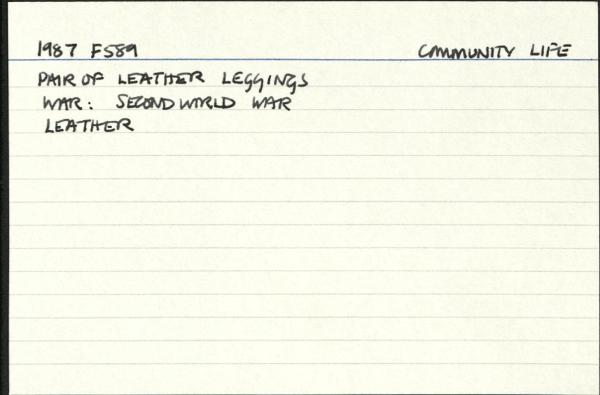 1987 F589 COMMUNITY LIFE
PAIR OF LEATHER LEGGINGS
WAR: SECOND WORLD WAR
LEATHER